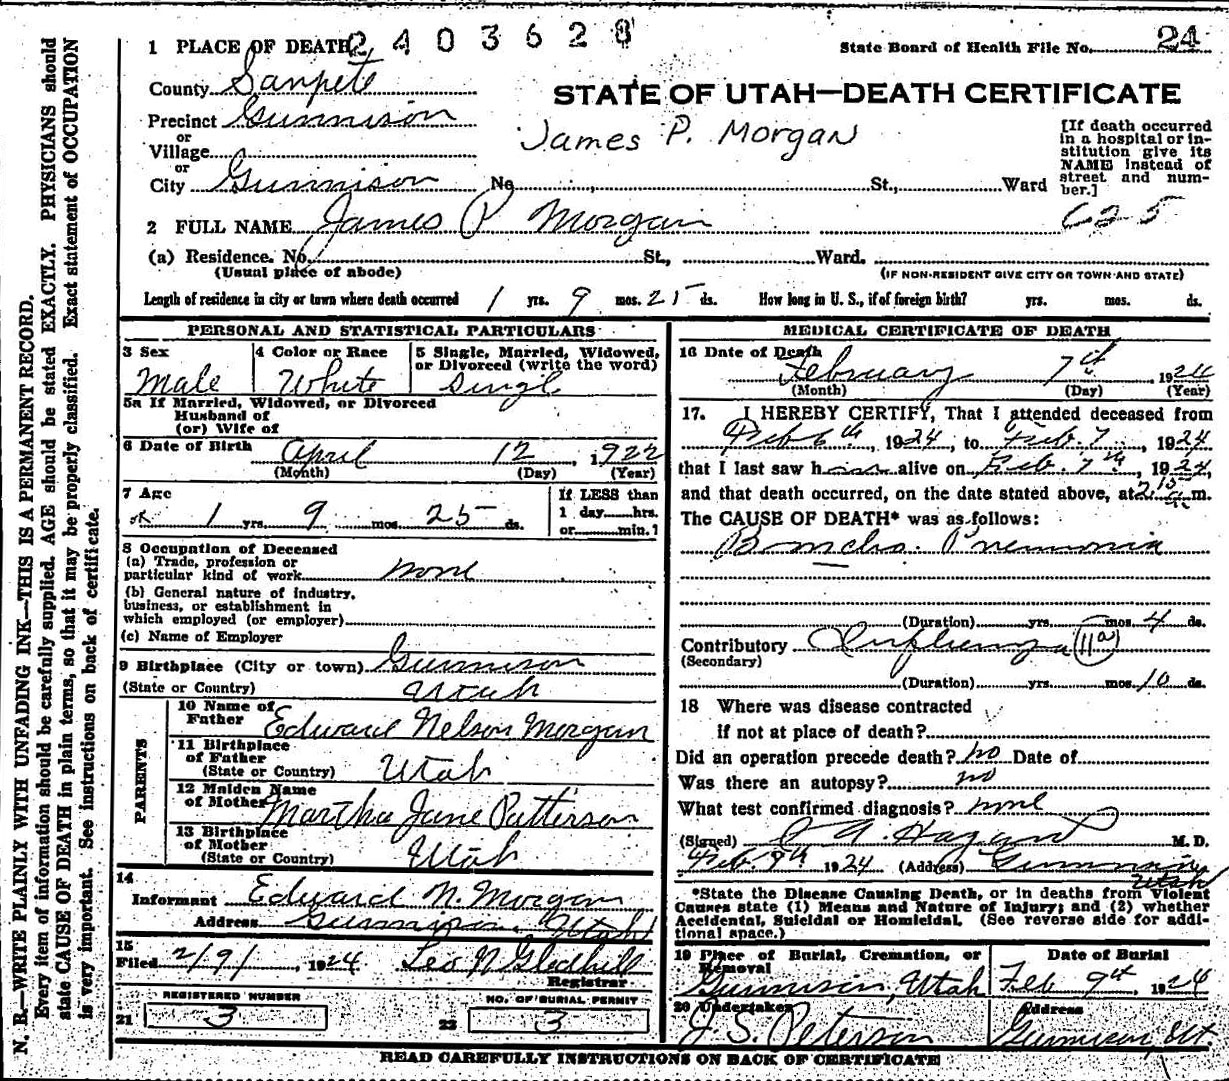 2403628
State Board of Health File No. 24
1 PLACE OF DEATH
County Sanpete
STATE OF UTAH—DEATH CERTIFICATE
Precinct Gunnison
James P. Morgan
or
Village
or
City Gunnison No. , St., Ward
[If death occurred
in a hospital or in-
stitution give its
NAME instead of
street and num-
ber.]
C25
2 FULL NAME James P Morgan
(a) Residence. No. St., Ward.
(Usual place of abode) (IF NON-RESIDENT GIVE CITY OR TOWN AND STATE)
Length of residence in city or town where death occurred 1 yrs. 9 mos. 25 ds. How long in U. S., if of foreign birth? yrs. mos. ds.
PERSONAL AND STATISTICAL PARTICULARS
3 Sex
Male
4 Color or Race
White
5 Single, Married, Widowed,
or Divorced (write the word)
Singl
5a If Married, Widowed, or Divorced
Husband of
(or) Wife of
6 Date of Birth April 12, 1922
(Month) (Day) (Year)
7 Age
1 yrs. 9 mos. 25 ds.
If LESS than
1 day.....hrs.
or.....min.?
8 Occupation of Deceased
(a) Trade, profession or
particular kind of work none
(b) General nature of industry,
business, or establishment in
which employed (or employer)
(c) Name of Employer
9 Birthplace (City or town) Gunnison
(State or Country) Utah
PARENTS
10 Name of
Father Edward Nelson Morgan
11 Birthplace
of Father
(State or Country) Utah
12 Maiden Name
of Mother Martha Jane Patterson
13 Birthplace
of Mother
(State or Country) Utah
14
Informant Edward N. Morgan
Address Gunnison Utah
15
Filed 2/9/, 1924. Leo N Gledhill
Registrar
REGISTERED NUMBER
21 3
NO. OF BURIAL PERMIT
22 3
MEDICAL CERTIFICATE OF DEATH
16 Date of Death
February 7th 1924
(Month) (Day) (Year)
17. I HEREBY CERTIFY, That I attended deceased from
Feb 6th, 1924, to Feb. 7, 1924
that I last saw him alive on Feb. 7th, 1924,
and that death occurred, on the date stated above, at 2 15 a.m.
The CAUSE OF DEATH* was as follows:
Broncho. Pnemonia
(Duration) yrs. mos. 4 ds.
Contributory Influenza 11a
(Secondary)
(Duration) yrs. mos. 10 ds.
18 Where was disease contracted
if not at place of death?
Did an operation precede death? no Date of
Was there an autopsy? no
What test confirmed diagnosis? none
(Signed) A. Hagan M. D.
Feb. 9th 1924 (Address) Gunnison
Utah
*State the Disease Causing Death, or in deaths from Violent
Causes state (1) Means and Nature of Injury; and (2) whether
Accidental, Suicidal or Homicidal. (See reverse side for addi-
tional space.)
19 Place of Burial, Cremation, or
Removal
Gunnison, Utah
Date of Burial
Feb 9th, 1924
20 Undertaker
J. S. Peterson
Address
Gunnison, Ut.
READ CAREFULLY INSTRUCTIONS ON BACK OF CERTIFICATE
N. B.—WRITE PLAINLY WITH UNFADING INK—THIS IS A PERMANENT RECORD.
Every item of information should be carefully supplied. AGE should be stated EXACTLY. PHYSICIANS should
state CAUSE OF DEATH in plain terms, so that it may be properly classified. Exact statement of OCCUPATION
is very important. See instructions on back of certificate.